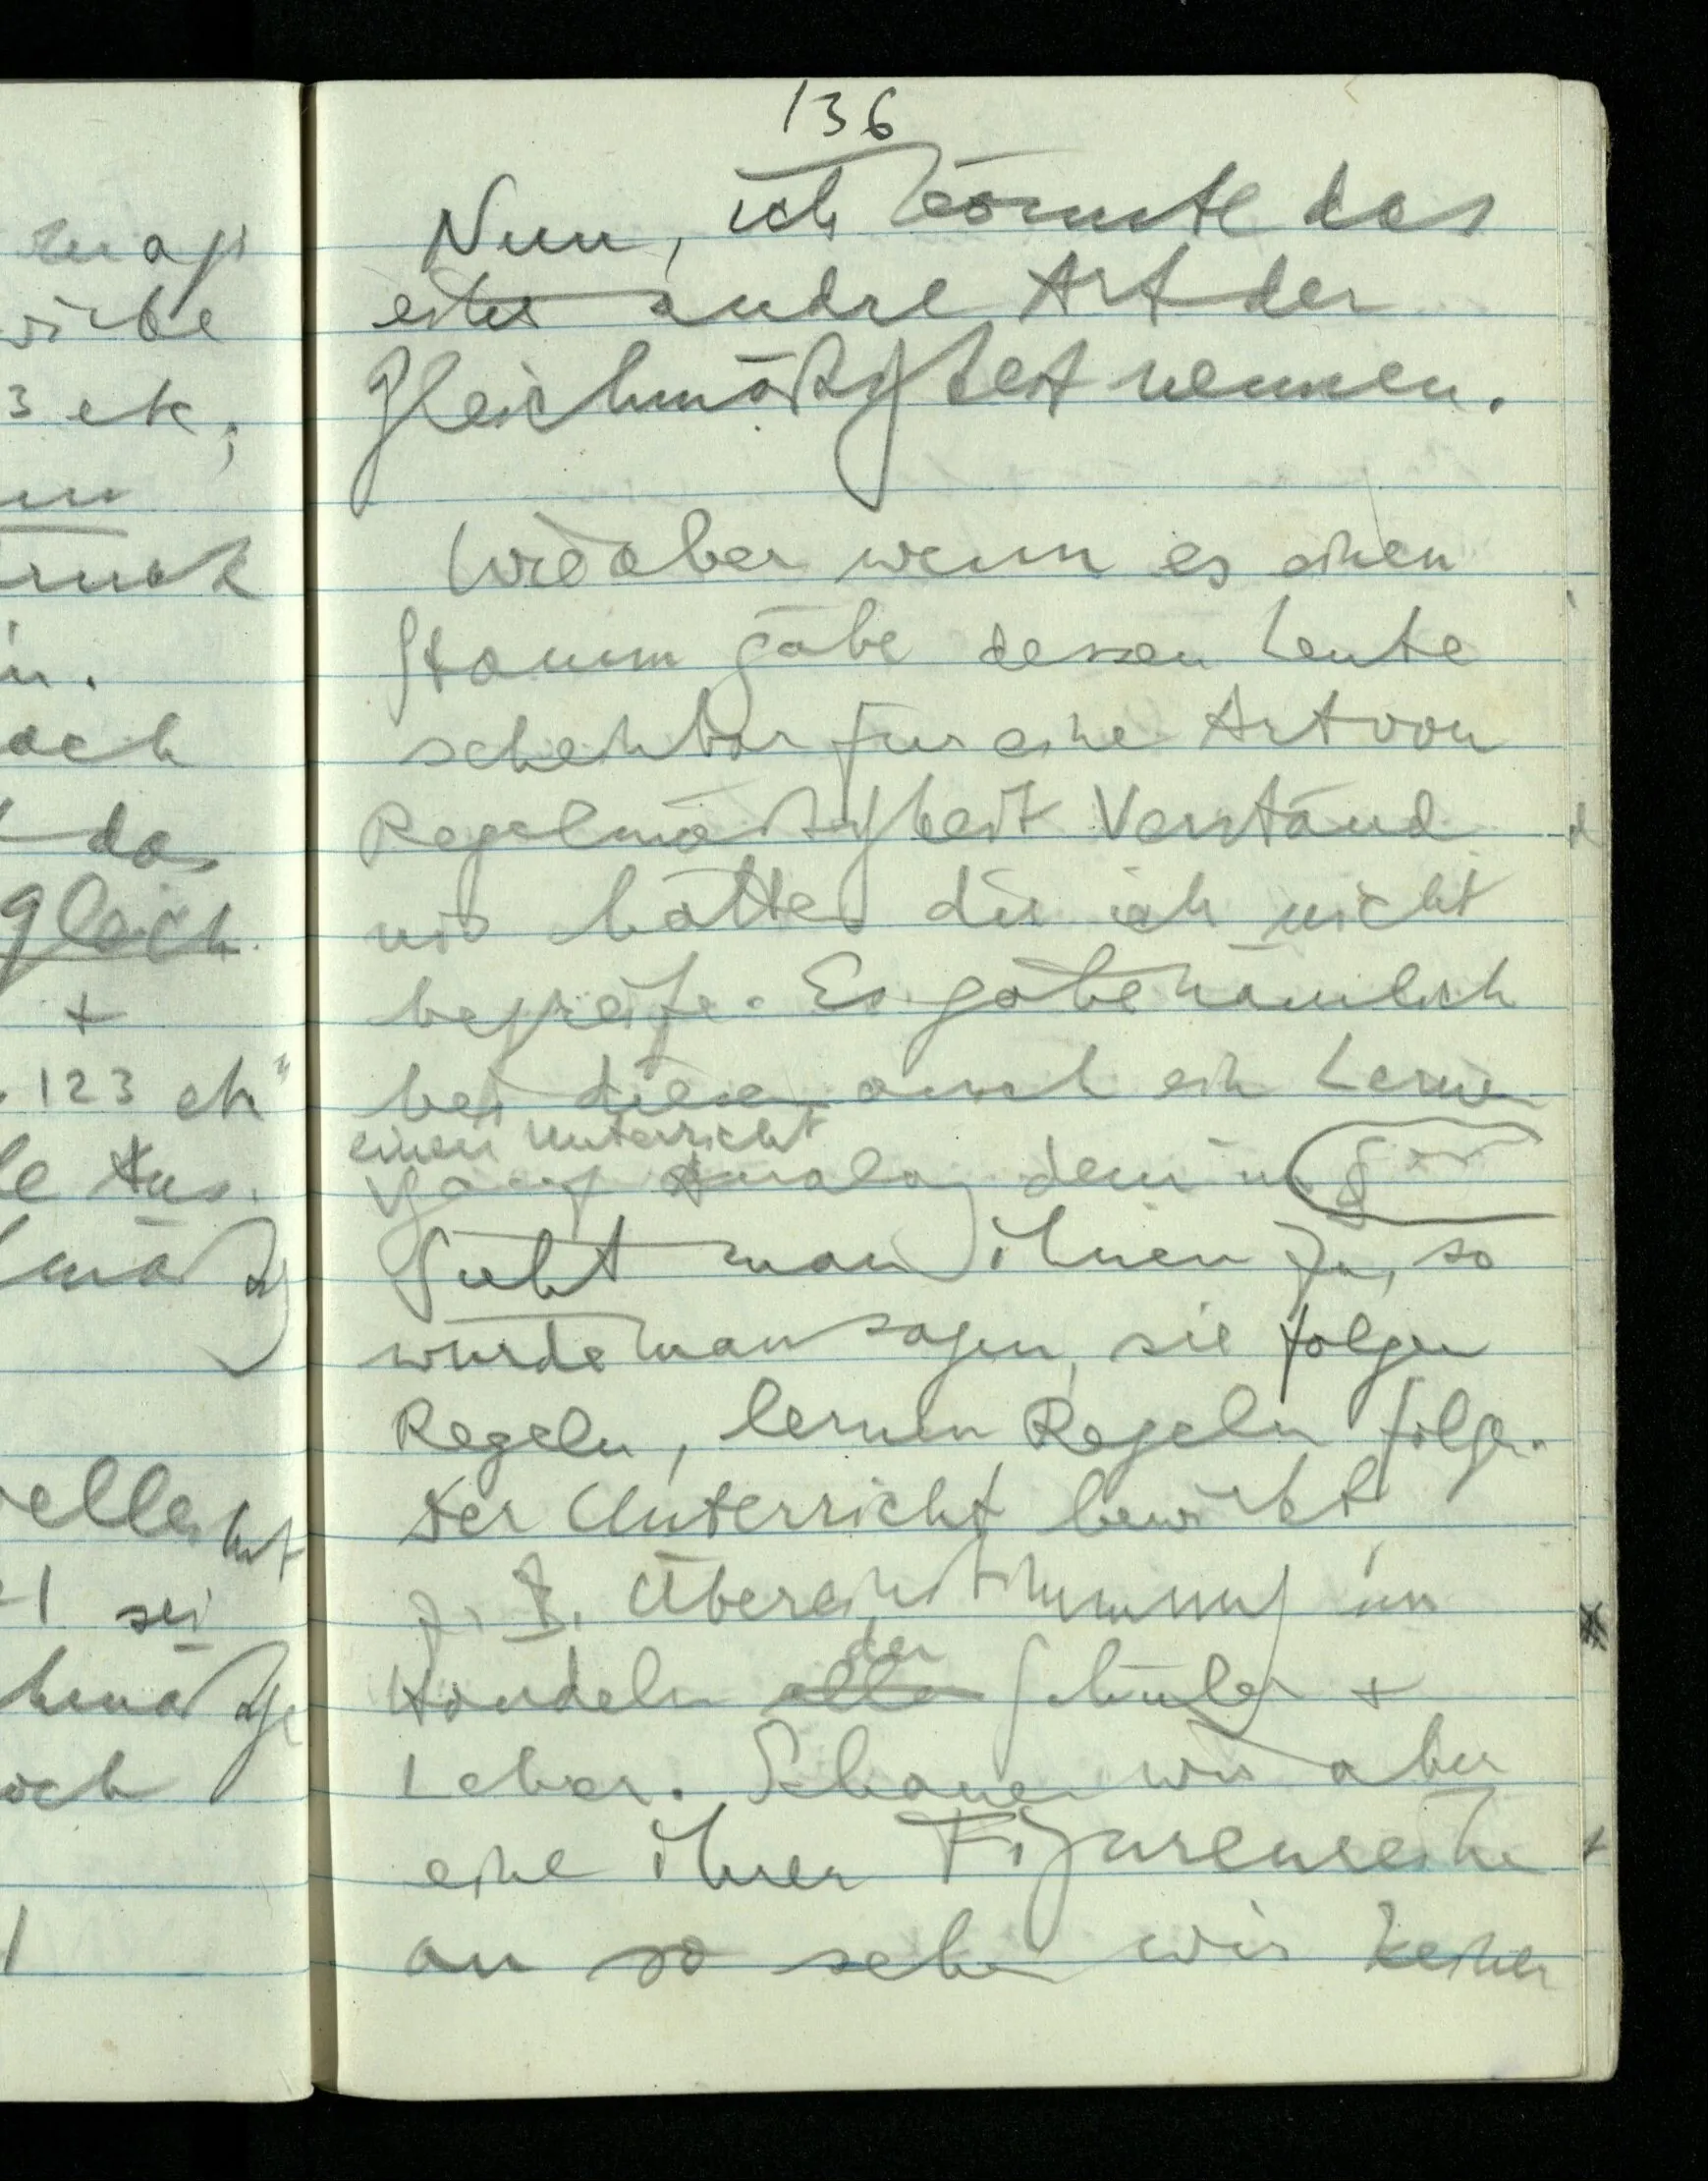 map
3 etc,
ruck
in.
ach
das
gleich
+
123 etc"
le Aus.
vielleicht
+1 sei
och
136
Nun, ich könnte das
eine andre Art der
Gleichmäßigkeit nennen.
Wie aber wenn es einen
Stamm gäbe dessen Leute
scheinbar für eine Art von
Regelmäßigkeit Verständ
nis hätten die ich nicht
begreife. Es gäbe nämlich
bei diesen auch ein Lernen
einen Unterricht
ganz analog dem in §
Sieht man ihnen zu, so
würde man sagen, sie folgen
Regeln, lernen Regeln folgen.
Der Unterricht bewirkt,
z. B. Übereinstimmung im
der
Handeln aller Schüler +
Lehrer. Schauen wir aber
eine ihrer Figurenreihen
an so sehen wir keiner